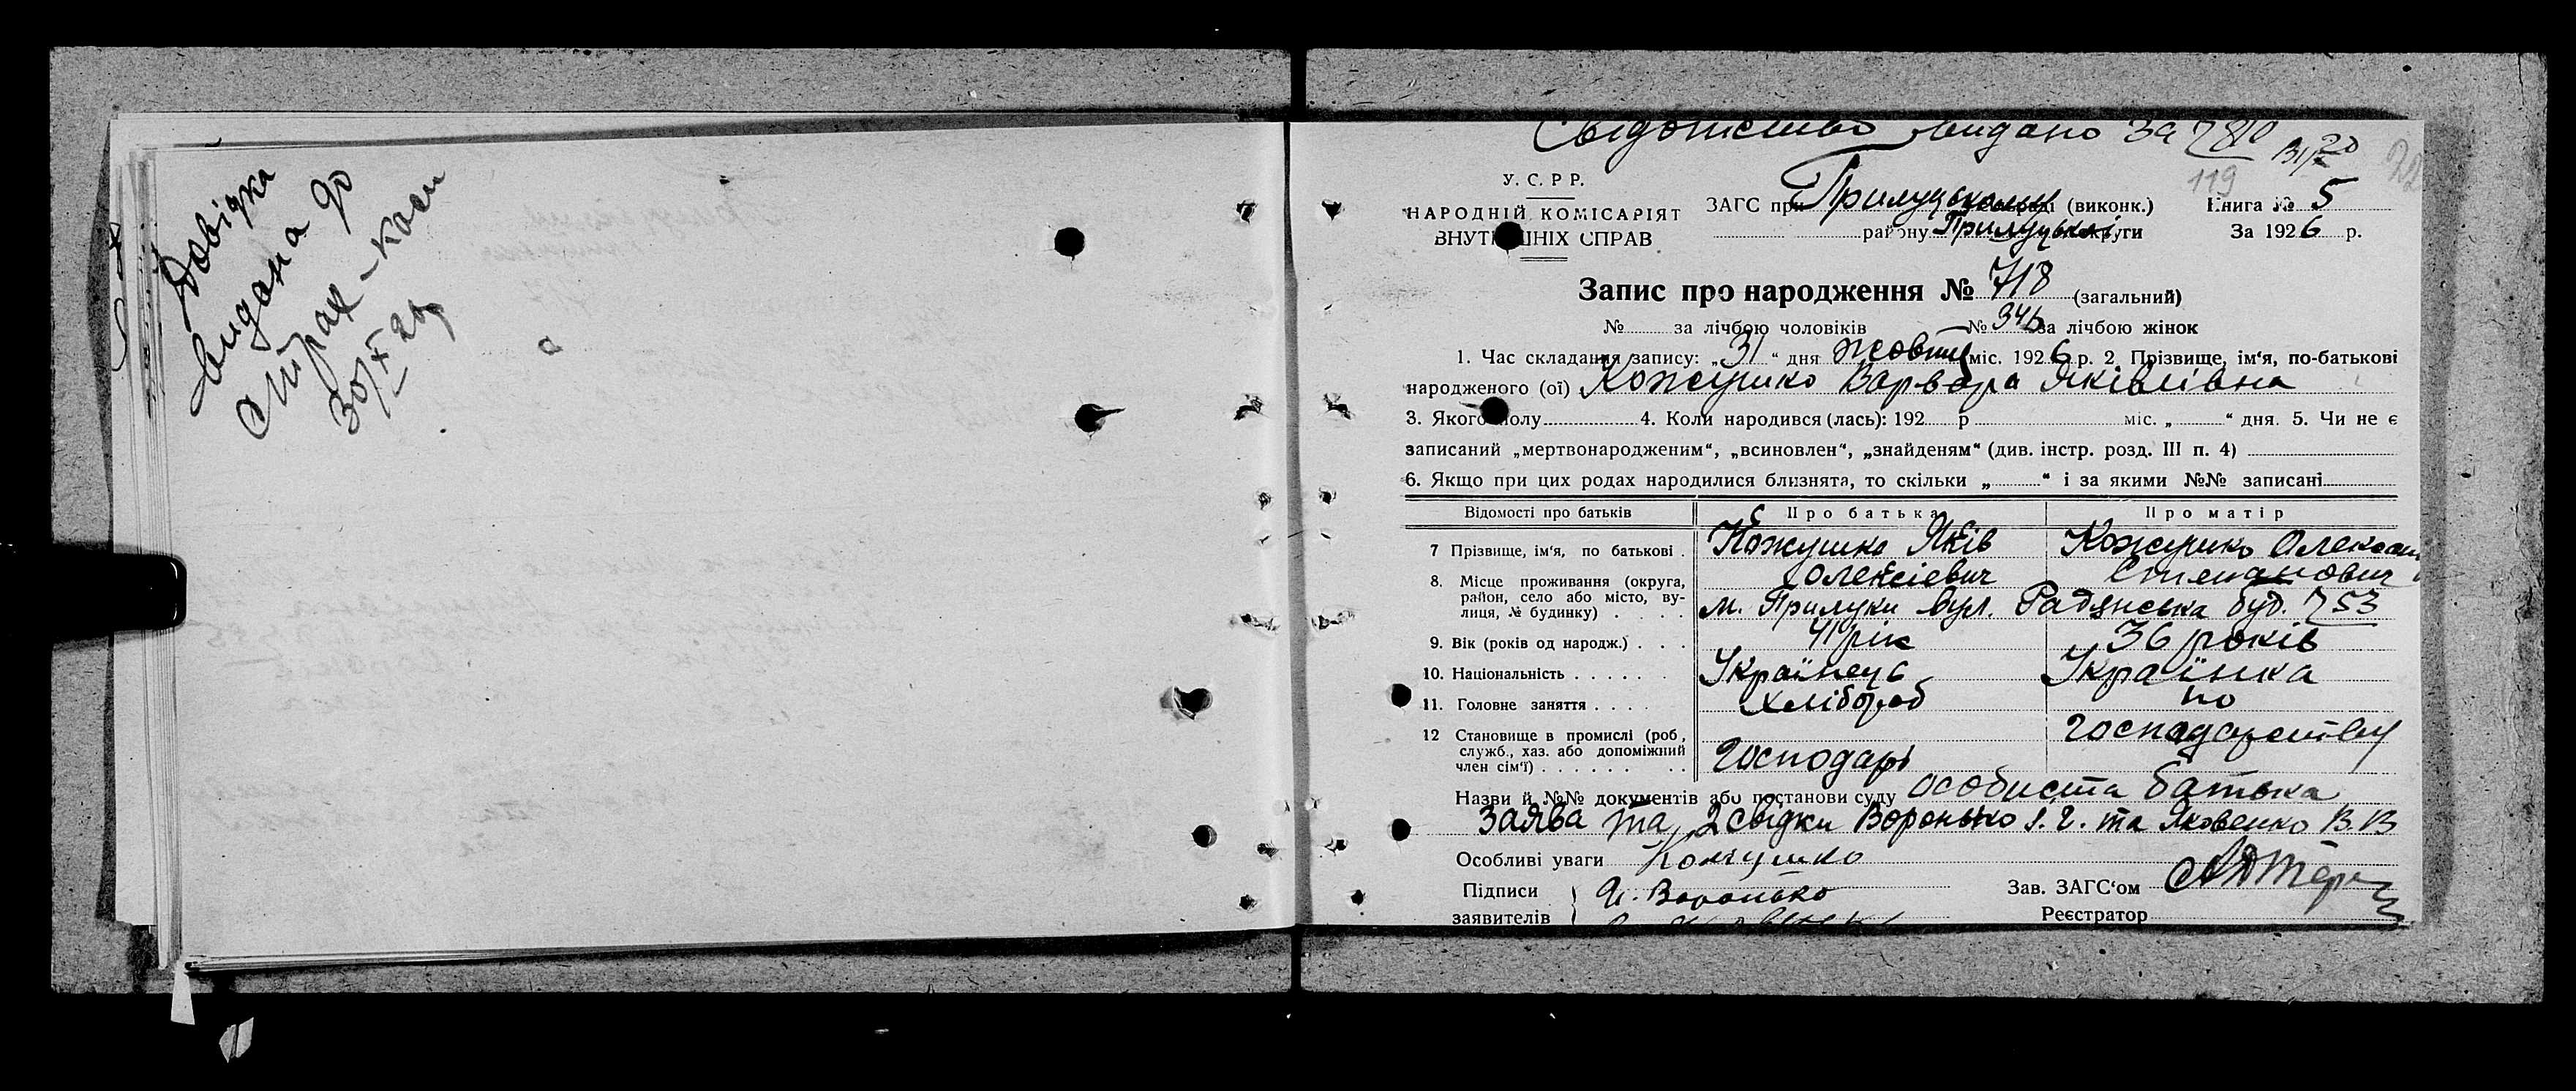 Довідка
видана до
Страх-каси
30/X 26 р
Свідотство видано за
119
У. С. Р Р.
НАРОДНІЙ КОМІСАРІЯТ
ВНУТРІШНІХ СПРАВ
ЗАГС при Прилуцькому раді (виконк.) Книга № 5
району Прилуцької округи За 1926 р.
Запис про народження № 718 (загальний)
№ за лічбою чоловіків № 346 за лічбою жінок
1. Час складання запису: „31“ дня жовтня міс. 1926 р. 2. Прізвище, ім'я, по-батькові
народженого (ої) Кожушко Варвара Яківлівна
3. Якого полу 4. Коли народився (лась): 192 р міс. „ “ дня. 5. Чи не є
записаний „мертвонародженим“, „всиновлен“, „знайденям“ (див. інстр. розд. III п. 4)
6. Якщо при цих родах народилися близнята, то скільки „ “ і за якими №№ записані
Відомості про батьків Про батька Про матір
7 Прізвище, ім'я, по батькові . Кожушко Яків Олексієвич Кожушко Степанович
8. Місце проживання (округа, район, село або місто, вулиця, № будинку) . . . . м. Прилуки вул. Радянська буд. 753
9. Вік (років од народж.) . . . 41 рік 36 років
10. Національність . . . . . . Українець Українка
11. Головне заняття . . . . Хлібороб по господарству
12 Становище в промислі (роб., служб., хаз. або допоміжний член сім'ї) . . . . . . . . Господарь
Назви й №№ документів або постанови суду особиста батька
заява та 2 свідки Воронько І. Г. та Яковенко В. В
Особливі уваги Кожушко
Підписи И. Воронько Зав. ЗАГС'ом
заявителів Реєстратор